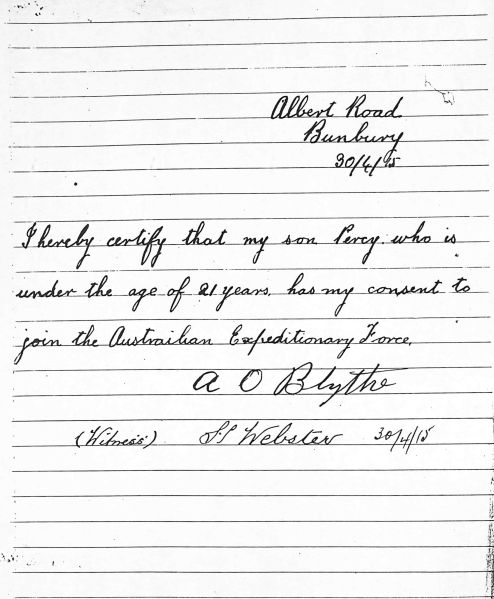 Albert Road
Bunbury
30/4/15
I hereby certify that my son Percy. who is
under the age of 21 years. has my consent to
join the Austrailian Expeditionary Force.
A O Blythe
(Witness) Webster 30/4/15